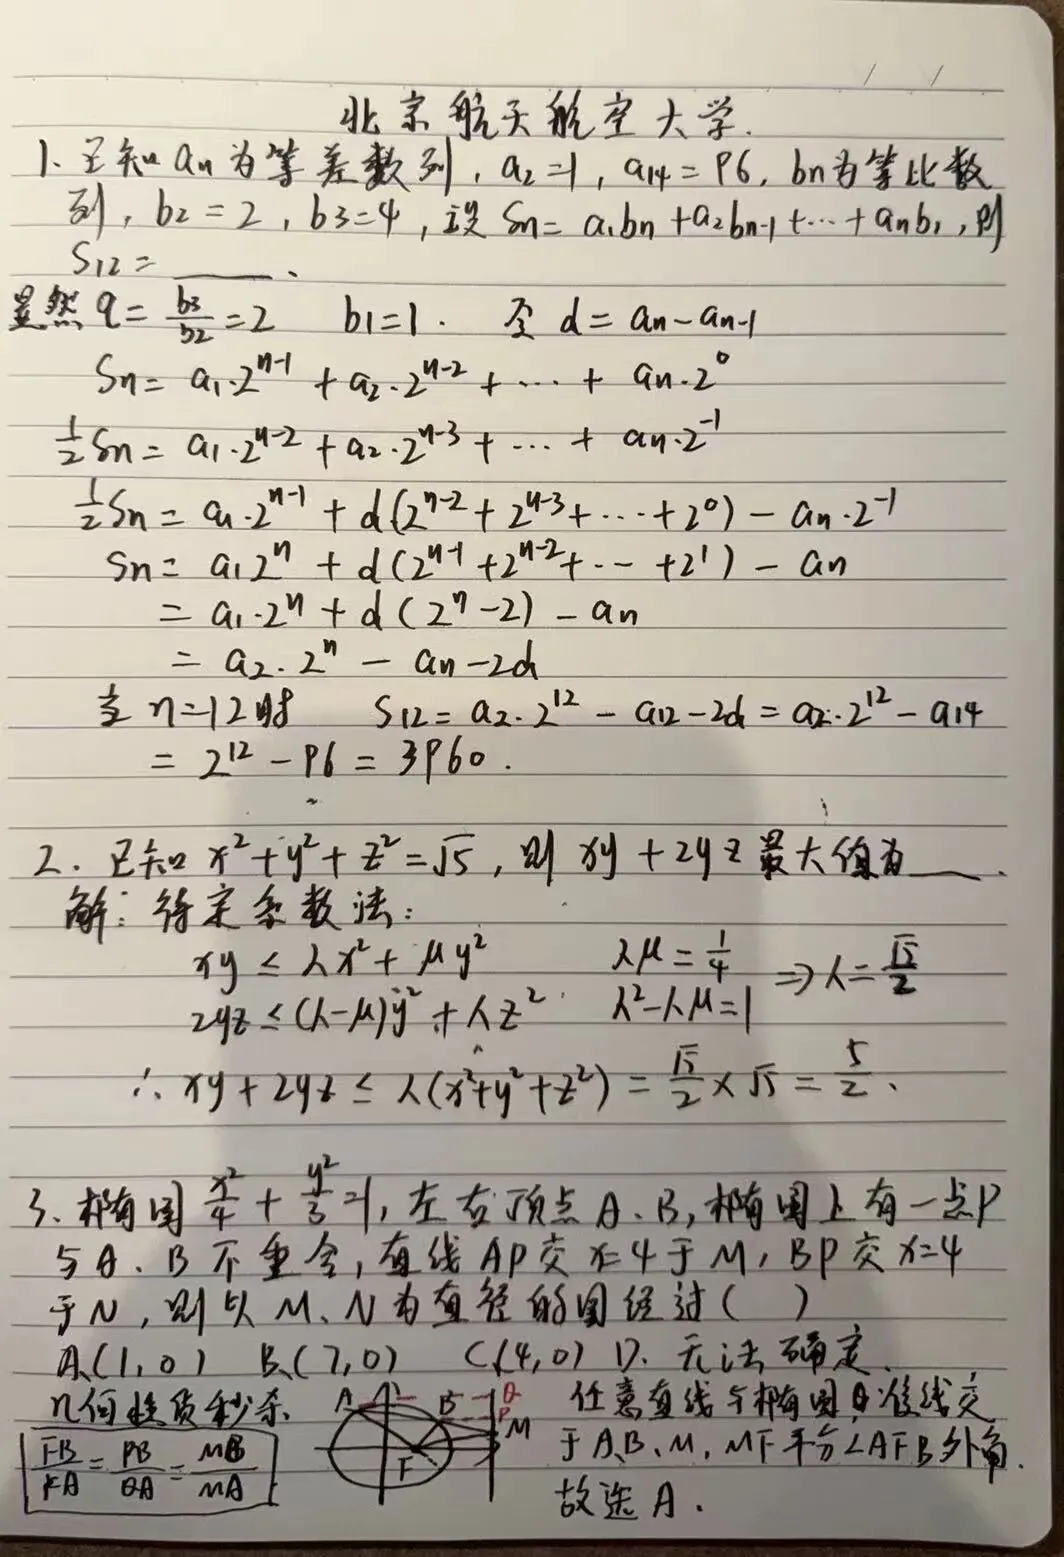 北京航天航空大学.
1. 已知 an 为等差数列, a2=1, a14=96, bn为等比数
列, b2=2, b3=4, 设 Sn= a1bn+a2bn-1+…+anb1, 则
S12= ____.
显然 q= b3/b2 =2 b1=1. 至 d= an-an-1
Sn= a1·2^(n-1) + a2·2^(n-2) + … + an·2^0
1/2 Sn= a1·2^(n-2) + a2·2^(n-3) + … + an·2^(-1)
1/2 Sn = a1·2^(n-1) + d(2^(n-2) + 2^(n-3) + … + 2^0) - an·2^(-1)
Sn= a1 2^n + d(2^(n-1) + 2^(n-2) + … + 2^1) - an
= a1·2^n + d(2^n-2) - an
= a2·2^n - an-2d
当 n=12时 S12= a2·2^12 - a12-2d = a2·2^12 - a14
= 2^12 - 96 = 3960.
2. 已知 x²+y²+z²=√5, 则 xy+2yz 最大值为____.
解: 待定系数法:
xy ≤ λx²+μy² λμ=1/4 ⇒ λ=√5/2
2yz ≤ (λ-μ)y²+λz² λ²-λμ=1
∴ xy+2yz ≤ λ(x²+y²+z²) = √5/2 × √5 = 5/2.
3. 椭圆 x²/4 + y²/3 =1, 左右顶点 A、B, 椭圆上有一点P
与A、B不重合, 直线AP交x=4于M, BP交x=4
于N, 则以M、N为直径的圆经过( )
A.(1,0) B.(7,0) C.(4,0) D. 无法确定.
几何性质秒杀.
FB/FA = PB/QA = MB/MA
A B Q P M F
任意直线与椭圆及准线交
于A、B、M, MF平分∠AFB外角.
故选A.